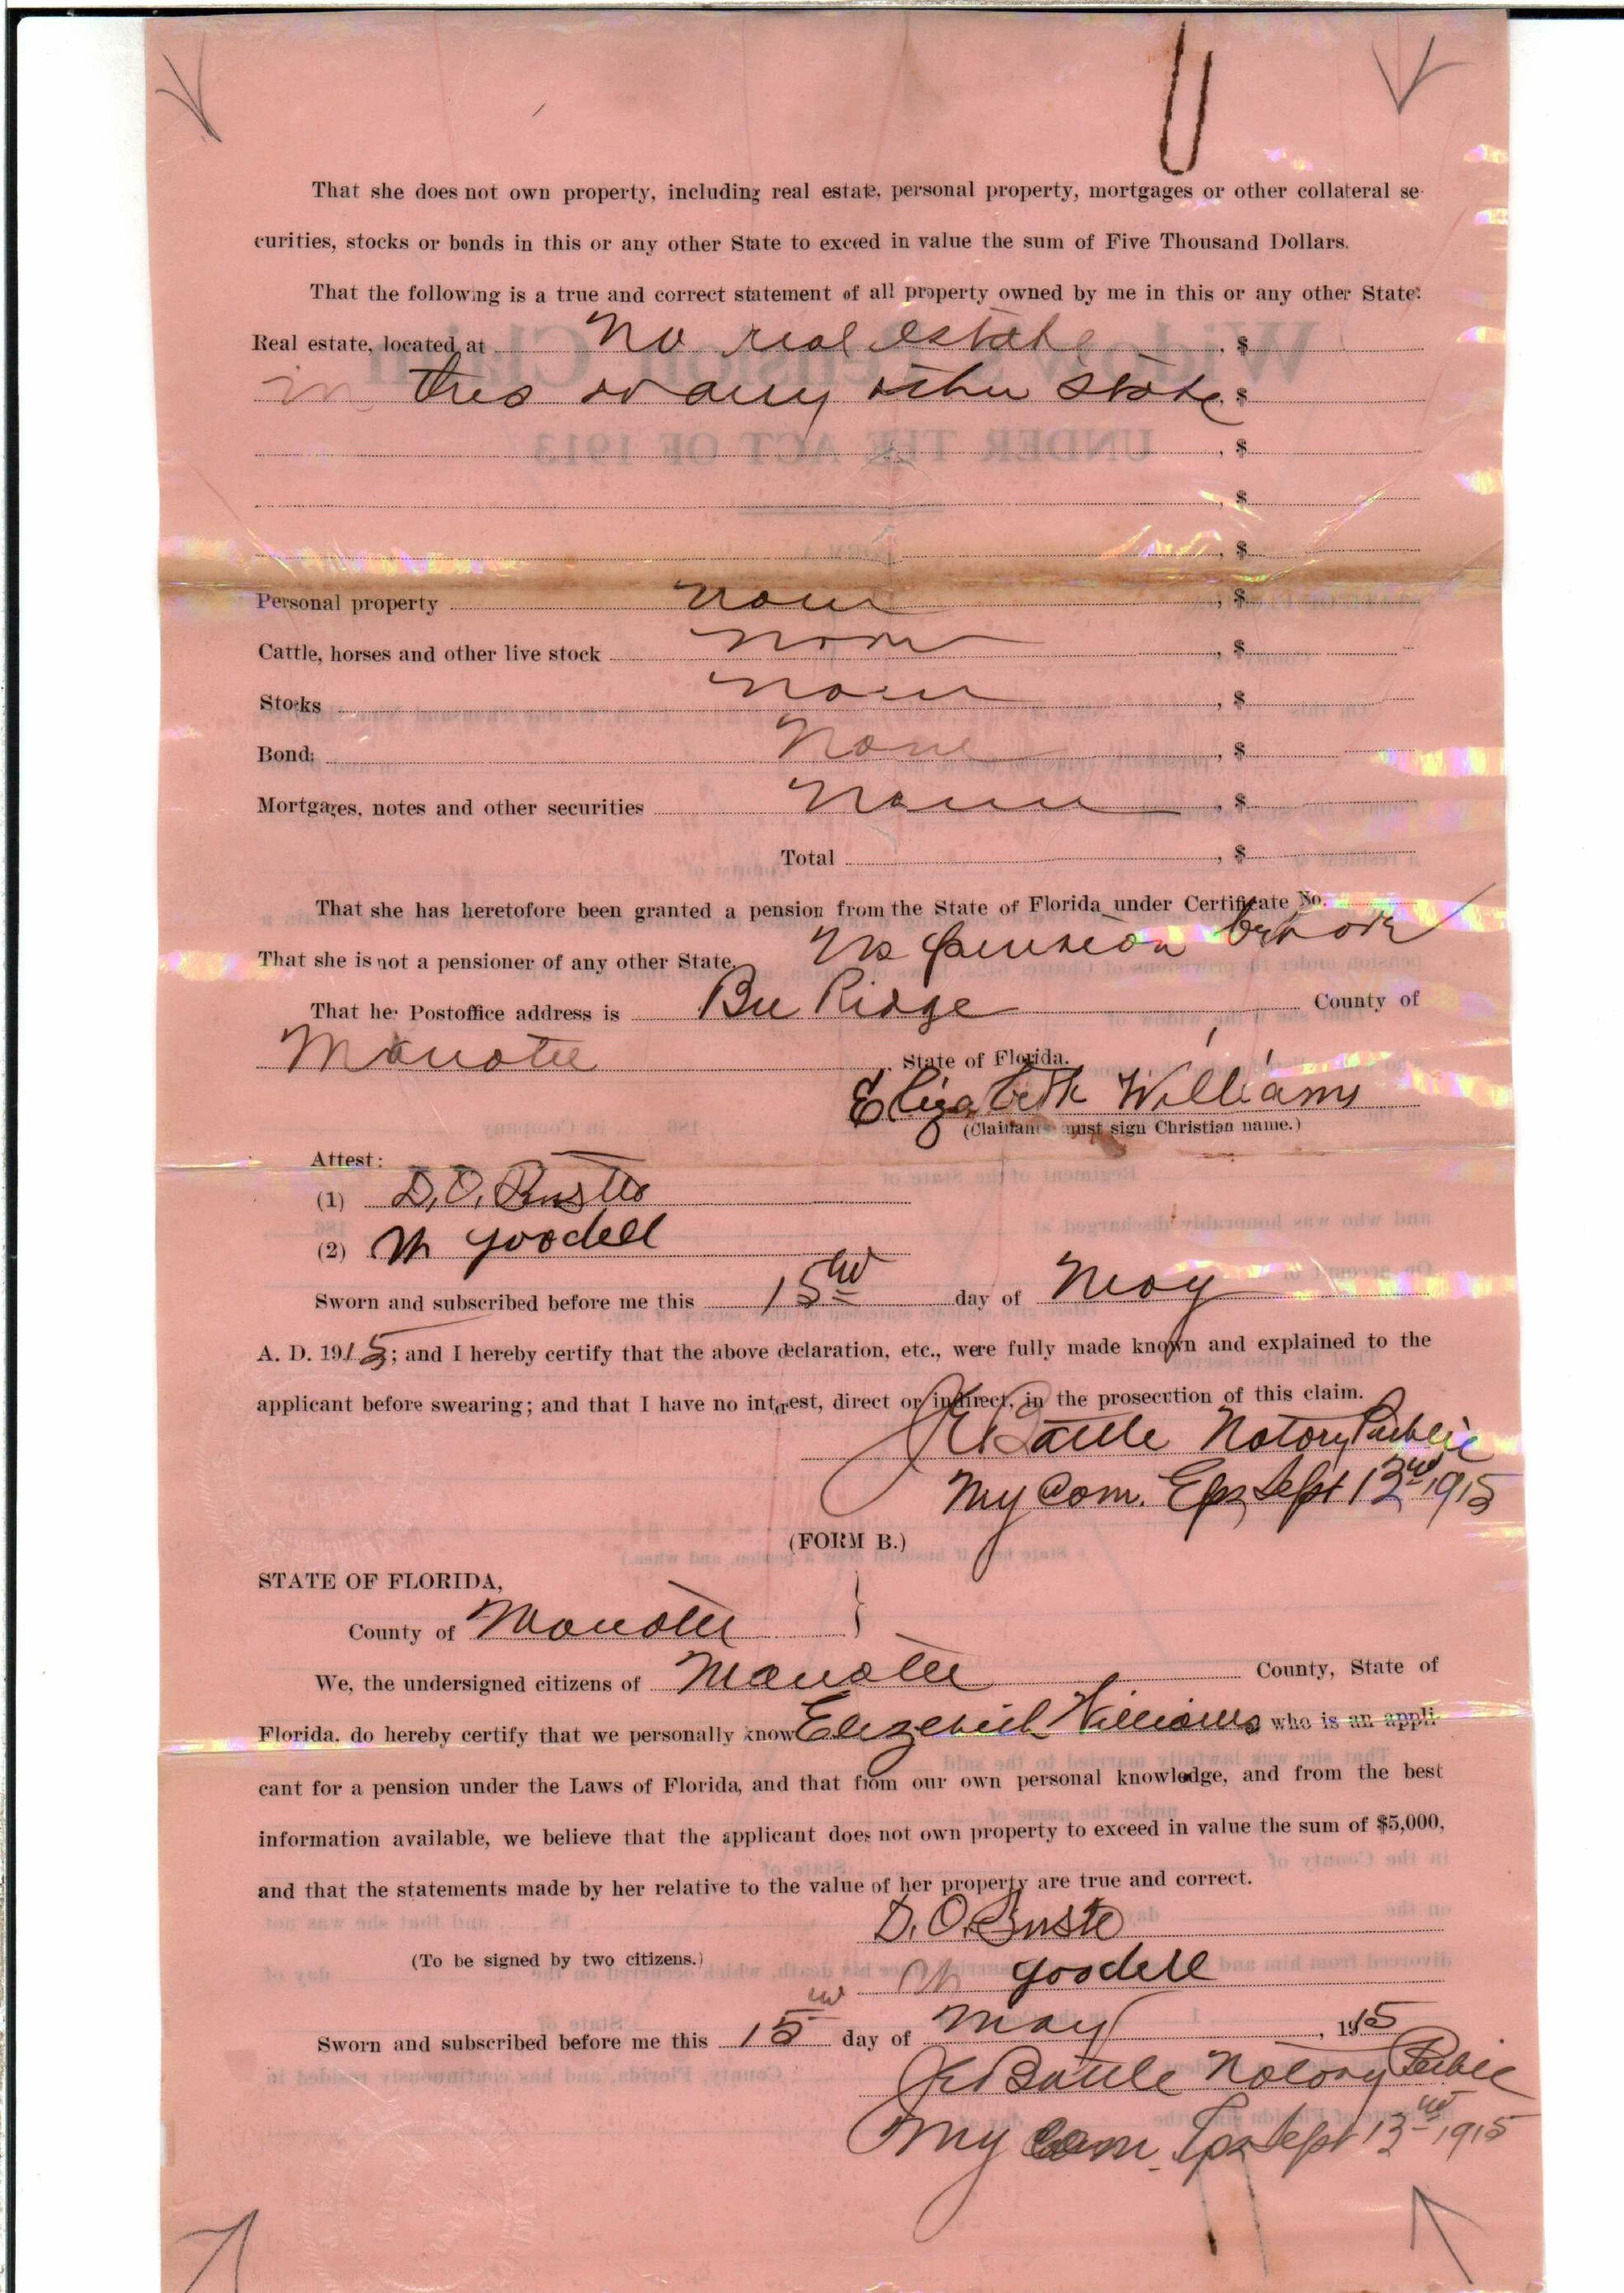 That she does not own property, including real estate, personal property, mortgages or other collateral se-
curities, stocks or bonds in this or any other State to exceed in value the sum of Five Thousand Dollars.
That the following is a true and correct statement of all property owned by me in this or any other State:
Real estate, located at No real estate , $
in this or any other State , $
, $
, $
, $
Personal property none , $
Cattle, horses and other live stock none , $
Stocks none , $
Bonds None , $
Mortgages, notes and other securities None , $
Total , $
That she has heretofore been granted a pension from the State of Florida under Certificate No.
That she is not a pensioner of any other State. No pension before
That her Postoffice address is Bee Ridge County of
Manatee State of Florida.
Elizabeth Williams
(Claimant must sign Christian name.)
Attest:
(1) D. O.
(2) M Goodell
Sworn and subscribed before me this 15 day of May
A. D. 1915; and I hereby certify that the above declaration, etc., were fully made known and explained to the
applicant before swearing; and that I have no interest, direct or indirect, in the prosecution of this claim.
Battle Notory Public
My Com. Sept 13 1915
(FORM B.)
STATE OF FLORIDA,
County of Manatee }
We, the undersigned citizens of Manatee County, State of
Florida, do hereby certify that we personally know Williams who is an appli-
cant for a pension under the Laws of Florida, and that from our own personal knowledge, and from the best
information available, we believe that the applicant does not own property to exceed in value the sum of $5,000,
and that the statements made by her relative to the value of her property are true and correct.
D. O.
(To be signed by two citizens.)
M Goodell
Sworn and subscribed before me this 15 day of May , 1915
Battle Notory Public
My Com. Sept 13 1915